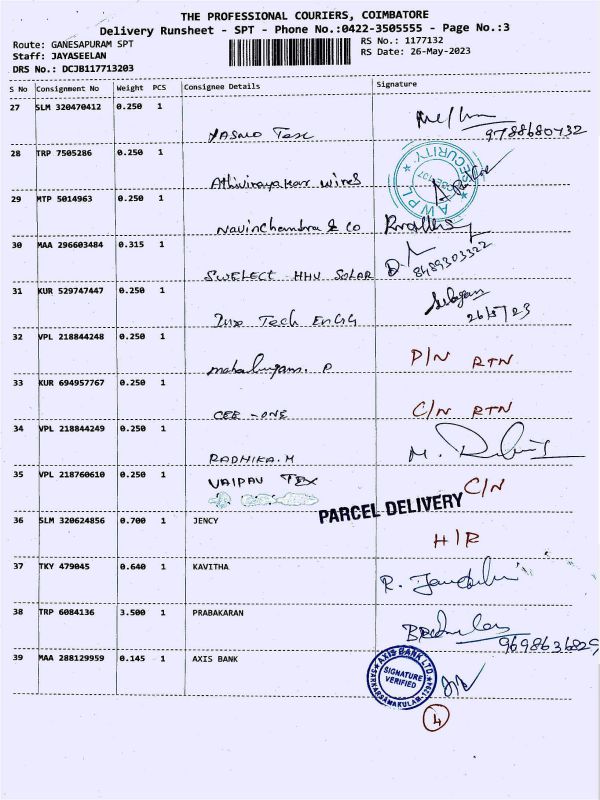 THE PROFESSIONAL COURIERS, COIMBATORE
Delivery Runsheet - SPT - Phone No.:0422-3505555 - Page No.:3
Route: GANESAPURAM SPT RS No.: 1177132
Staff: JAYASEELAN RS Date: 26-May-2023
DRS No.: DCJB117713203
S No Consignment No Weight PCS Consignee Details Signature
27 SLM 320470412 0.250 1
9788680732
28 TRP 7505286 0.250 1
SECURITY
AWPL
Athivinayakar wires
29 MTP 5014963 0.250 1
Navinchandra & co
30 MAA 296603484 0.315 1
8489303322
SWELECT HHV SOLAR
31 KUR 529747447 0.250 1
26/5/23
Tech
32 VPL 218844248 0.250 1
P D/N RTN
33 KUR 694957767 0.250 1
CEE - ONE C/N RTN
34 VPL 218844249 0.250 1
RADHIKA.M M.
35 VPL 218760610 0.250 1 VAIPAV TEX C/N
PARCEL DELIVERY
36 SLM 320624856 0.700 1 JENCY
H/R
37 TKY 479045 0.640 1 KAVITHA
R.
38 TRP 6084136 3.500 1 PRABAKARAN
9698636829
39 MAA 288129959 0.145 1 AXIS BANK
AXIS BANK LTD
SIGNATURE
VERIFIED
4